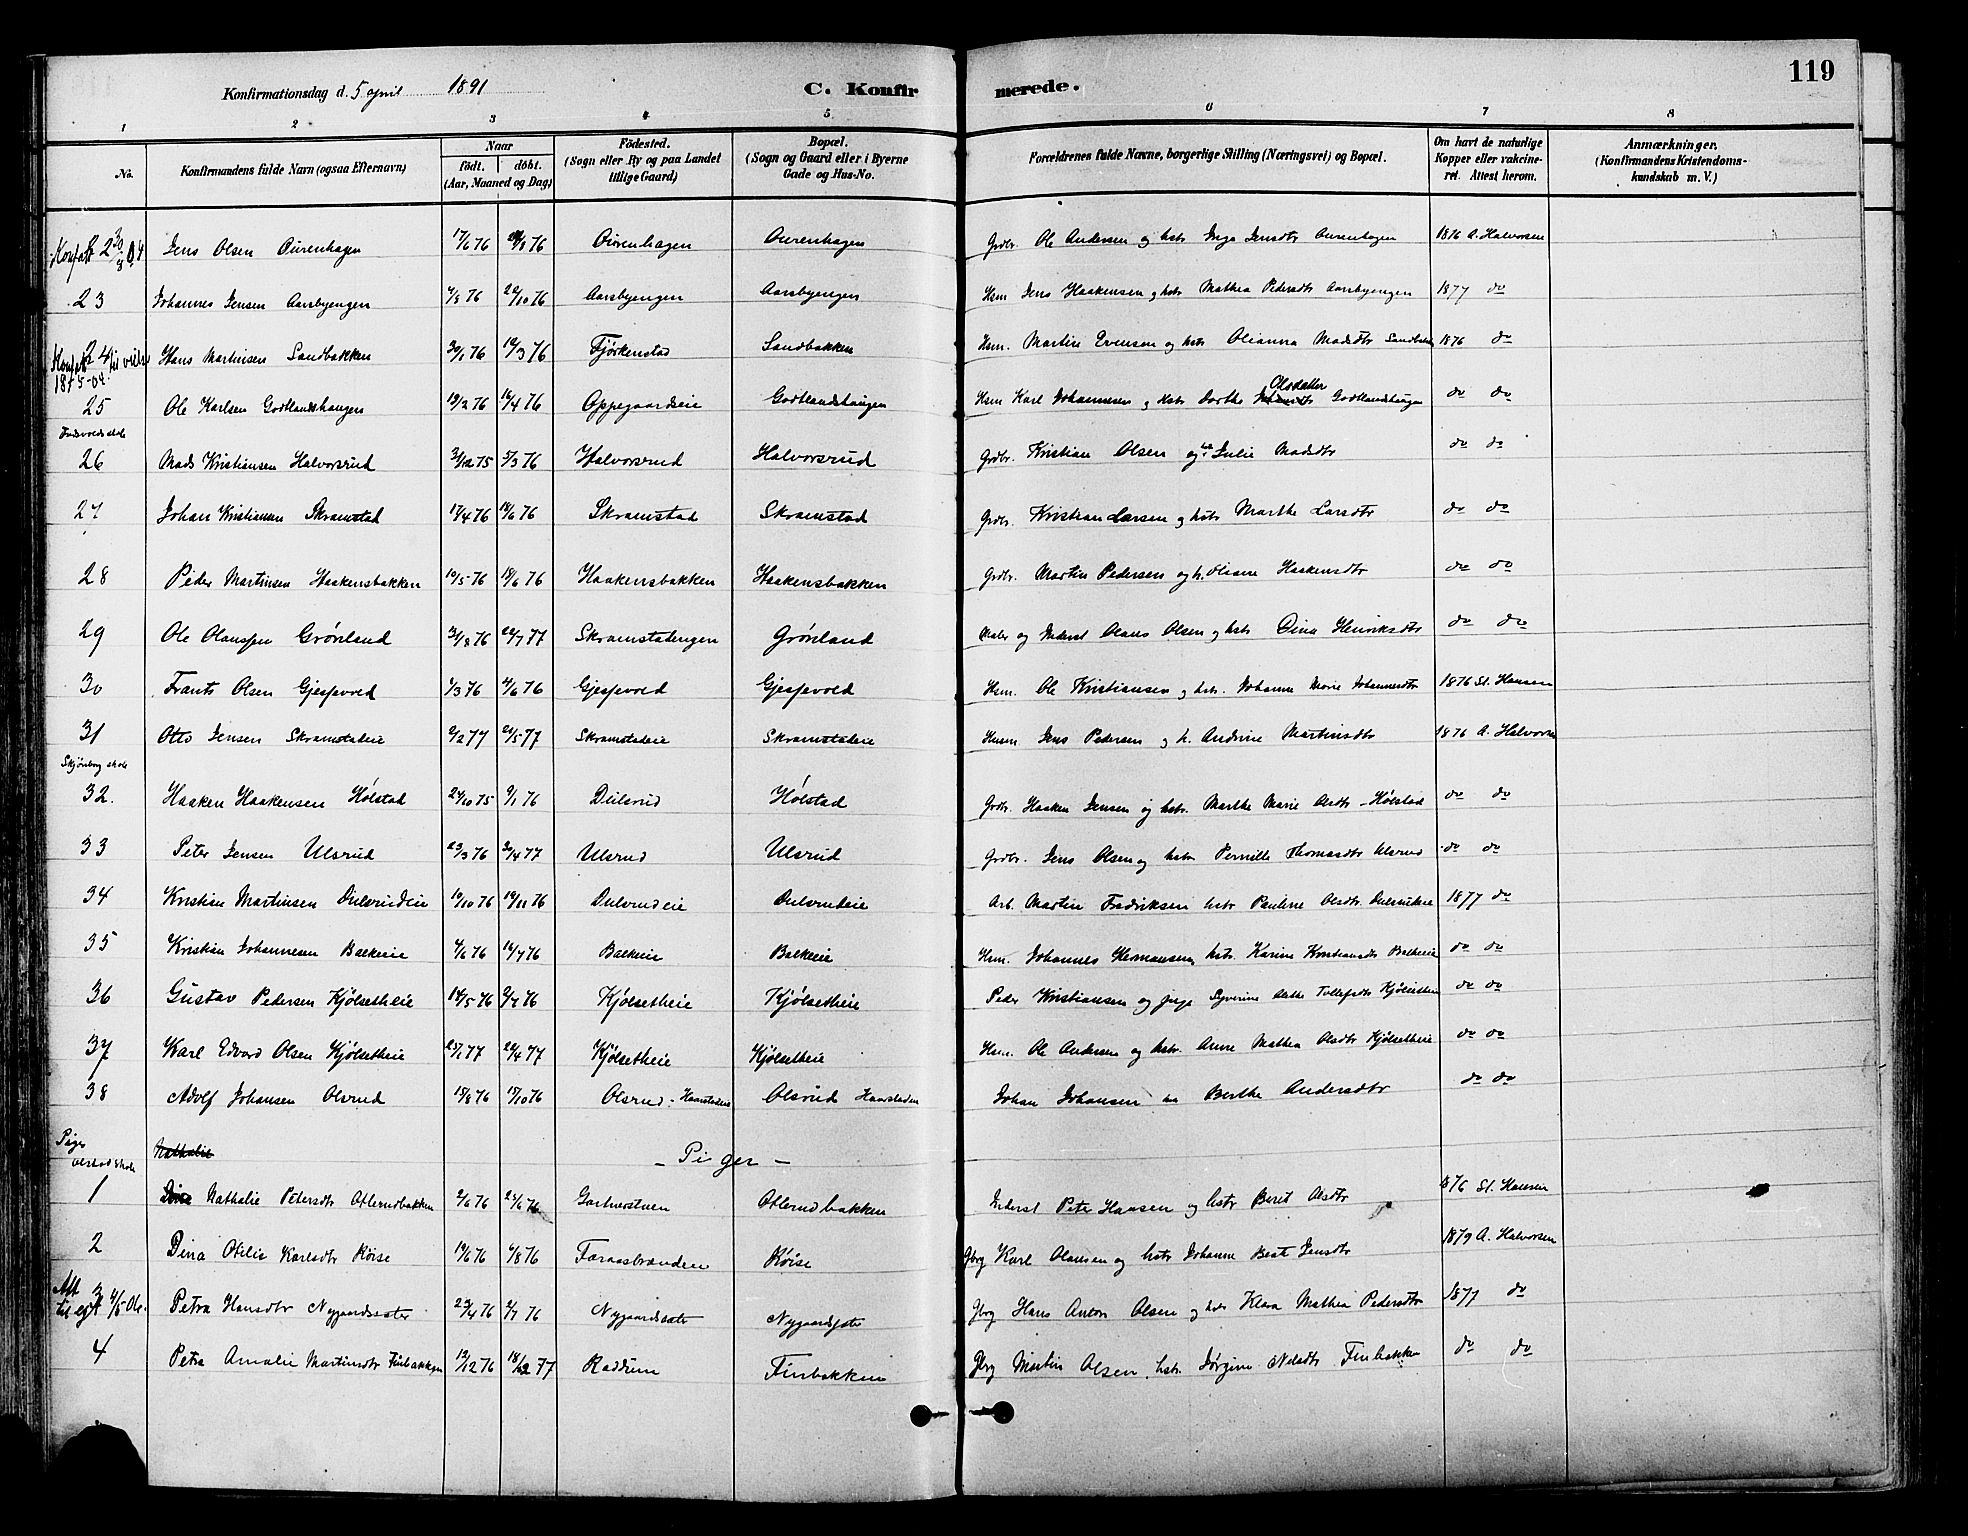 119
Konfirmationsdag d. 5 april 1891 C. Konfir merede.
1 2 3 4 5 6 7 8
No. Konfirmandens fulde Navn (ogsaa Efternavn) Naar födt. döbt. (Aar, Maaned og Dag) Födested. (Sogn eller By og paa Landet tillige Gaard) Bopæl. (Sogn og Gaard eller i Byerne Gade og Hus-No. Forældrenes fulde Navne, borgerlige Stilling (Næringsvei) og Bopæl. Om havt de naturlige Kopper eller vakcineret. Attest herom. Anmærkninger. (Konfirmandens Kristendomskundskab m. V.)
Jens Olsen Ourenhagen 17/6 76 Ourenhagen Ourenhagen Grdbr. Ole Andersen og hstr Inga Jensdtr Ourenhagen 1876 A. Halvorsen
23 Johannes Jensen Aarsbyengen Aarsbyengen Aarsbyengen Hsm Jens Haakensen og hstr Mathea Pedersdtr Aarsbyengen 1877 do
24 Hans Martinsen Sandbakken 30/1 76 19/3 76 Fjörkenstad Sandbakken Hsm. Martin Evensen og hstr Olianna Madsdtr 1876 do
25 Ole Karlsen Godtlandshaugen 19/2 76 16/4 76 Oppegaardseie Godtlandshaugen Hsm Karl Johannesen og hstr Dorthe Olsdatter Godtlandshaugen do do
26 Mads Kristiansen Halvorsrud 31/12 75 5/3 76 Halvorsrud Halvorsrud Grdbr. Kristian Olsen og Julie Madsdtr do do
27 Johan Kristiansen Skramstad 17/4 76 18/6 76 Skramstad Skramstad Grdbr. Kristian Larsen og hstr Marthe Larsdtr do do
28 Peder Martinsen Haakensbakken 10/5 76 18/6 76 Haakensbakken Haakensbakken Grdbr. Martin Pedersen og h. Oliane Haakensdtr do do
29 Ole Olaussen Grönland Skramstadengen Grönland Maler og Inderst Olaus Olsen og hstr Dina Henriksdtr do do
30 Frants Olsen Gjesfevold 1/3 76 4/6 76 Gjesfevold Gjesfevold Hsm. Ole Kristiansen og hstr. Johanne Marie Johannesdtr 1876 St. Hansen
31 Otto Jensen Skramstadeie Skramstadeie Skramstadeie Husm Jens Pedersen og h. Andrine Martinsdtr 1876 A. Halvorsen
Skjönberg skole
32. Haaken Haakensen Hólstad 24/10 75 9/1 76 Dulsrud Hólstad Grdbr. Haaken Jensen og hstr. Marthe Marie Olsdtr - Hólstad do do
33 Peter Jensen Ulsrud 23/3 76 30/4 77 Ulsrud Ulsrud Grdbr. Jens Olsen og hstr Pernille Thomasdtr Ulsrud do do
34 Kristian Martinsen Dulsrudeie 10/10 76 19/11 76 Dulsrudeie Dulsrudeie Arb. Martin Fredriksen hstr Pauline Olsdtr. Dulsrudeie 1877 do
35 Kristian Johannesen Balkeeie 4/6 76 16/7 76 Balkeeie Balkeeie Hsm. Johannes Hermansen hstr. Karine Kristiansdtr Balkeeie do do
36 Gustav Pedersen Kjölsetheie 14/5 76 2/7 76 Kjölsetheie Kjölsetheie Peder Kristiansen og pige Syverine Tollefsdtr Kjölsetheie do do
37 Karl Edvard Olsen Kjölsetheie 25/1 77 22/4 77 Kjölsetheie Kjölsetheie Hsm. Ole Andersen og hstr. Anne Mathea Olsdtr Kjölsetheie do do
38 Adolf Johansen Olsrud 15/8 76 15/10 76 Olsrud - Haarstadeie Olsrud Haarstadeie Johan Johansen Berthe Andersdtr do do
Piger Nathalie - Piger -
1 Nathalie Petersdtr Otlerudbakken 2/6 76 25/6 76 Otlerudbakken Inderst Peter Hansen og hstr Berit Olsdtr 1876 St. Hansen
2 Dina Otelie Karlsdtr Röise 19/6 76 4/8 76 Faraasbranden Röise Gbrg Karl Olausen og hstr Johanne Beate Jensdtr 1879 A. Halvorsen
3 Petra Hansdtr Nygaardsæter 23/4 76 2/7 76 Nygaardsæter Nygaardsæter Gbrg Hans Anton Olsen og hstr Klara Mathea Pedersdtr 1877 do
4 Petra Amalie Martinsdtr Finbakken 12/12 76 18/2 77 Raddum Finbakken Gbrg Martin Olsen, hstr. Jörgine Nilsdtr Finbakken do do